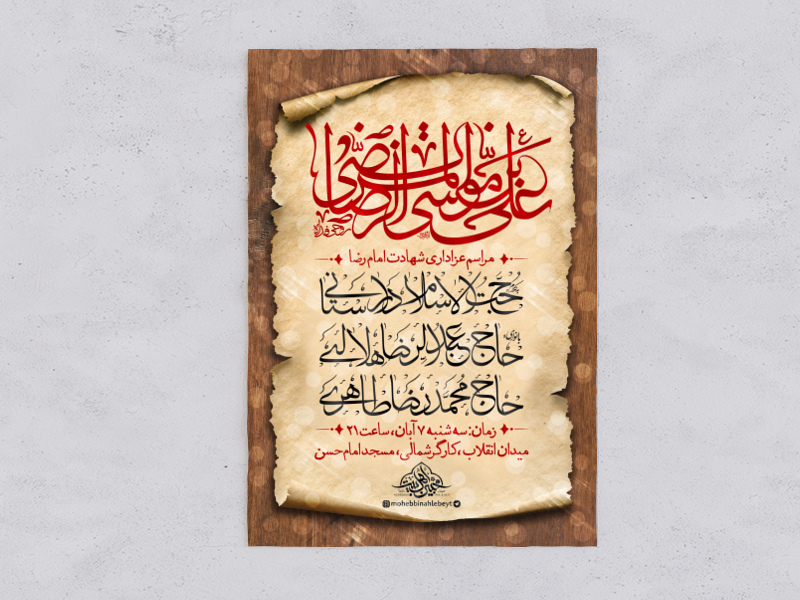 علی بن موسی الرضا المرتضی ع
روحی فداه
مراسم عزاداری شهادت امام رضا
حجت الاسلام دارستانی
حاج عبدالرضا هلالی
حاج محمدرضا طاهری
زمان: سه شنبه ۷ آبان، ساعت ۲۱
میدان انقلاب، کارگر شمالی، مسجد امام حسن
محبین اهل بیت
mohebbinahlebeyt